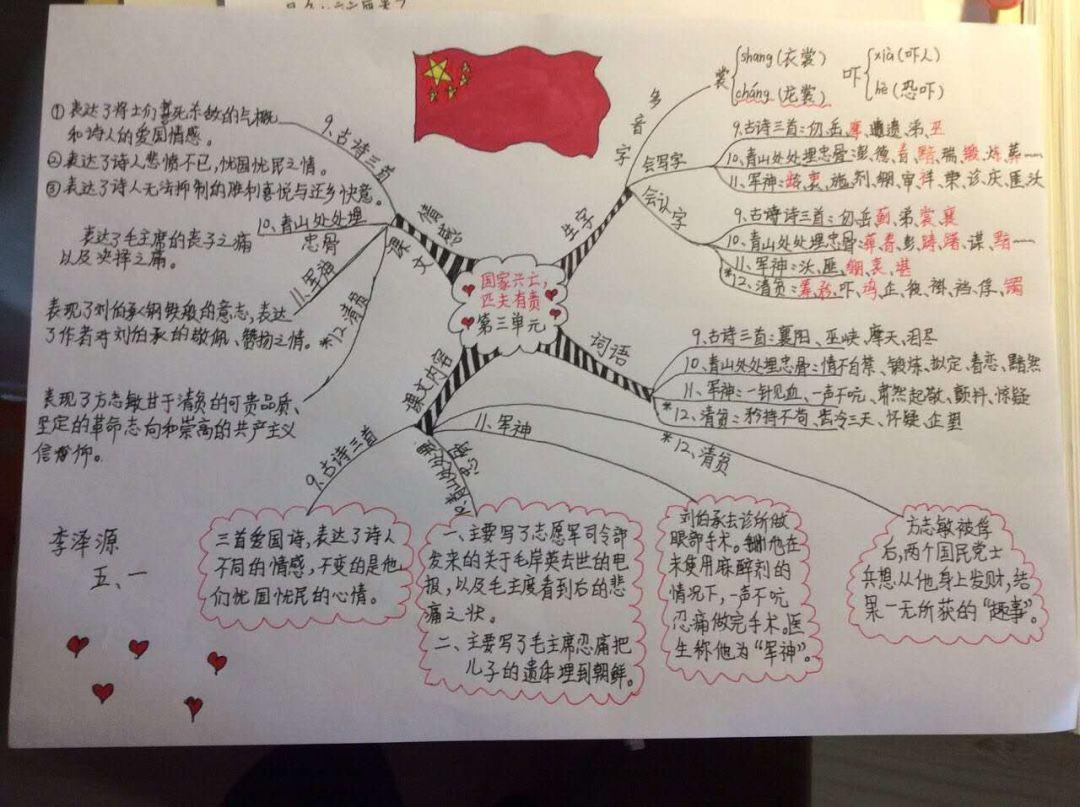 国家兴亡,
匹夫有责
第三单元
课文情感
9.古诗三首
① 表达了将士们
死杀敌的气概
和诗人的爱国情感。
② 表达了诗人悲愤不已,忧国忧民之情。
③ 表达了诗人无法抑制的胜利喜悦与还乡快意。
10.青山处处埋
忠骨
表达了毛主席的丧子之痛
以及抉择之痛。
11.军神
表现了刘伯承钢铁般的意志,表达
了作者对刘伯承的敬佩、赞扬之情。
*12.清贫
表现了方志敏甘于清贫的可贵品质、
坚定的革命志向和崇高的共产主义
信仰。
生字
多音字
裳
shang(衣裳)
cháng(龙裳)
吓
xià(吓人)
hè(恐吓)
会写字
9.古诗三首:仞、岳、摩、遗、弟、巫
10.青山处处埋忠骨:彭、德、眷、黯、瑞、锻、炼、葬……
11.军神:龄、衷、施、剂、绷、审、祥、崇、诊、庆、匪、沃
会认字
9.古诗三首:仞、岳、蓟、弟、裳、襄
10.青山处处埋忠骨:彭、踌、躇、谋、黯……
11.军神:沃、匪、绷、衷、堪
*12.清贫:筹、吓、企、裤、裆、俘、镯
词语
9.古诗三首:襄阳、巫峡、摩天、泪尽
10.青山处处埋忠骨:情不自禁、锻炼、拟定、眷恋、黯然
11.军神:一针见血、一声不吭、肃然起敬、颤抖、惊疑
*12.清贫:矜持不苟、怀疑、企望
课文内容
9.古诗三首
三首爱国诗,表达了诗人
不同的情感,不变的是他
们忧国忧民的心情。
一、主要写了志愿军司令部
发来的关于毛岸英去世的电
报,以及毛主席看到后的悲
痛之状。
二、主要写了毛主席忍痛把
儿子的遗体埋到朝鲜。
11、军神
刘伯承去诊所做
眼部手术。他在
未使用麻醉剂的
情况下,一声不吭
忍痛做完手术。医
生称他为“军神”。
*12、清贫
方志敏被俘
后,两个国民党士
兵想从他身上发财,结
果一无所获的“趣事”。
李泽源
五、一